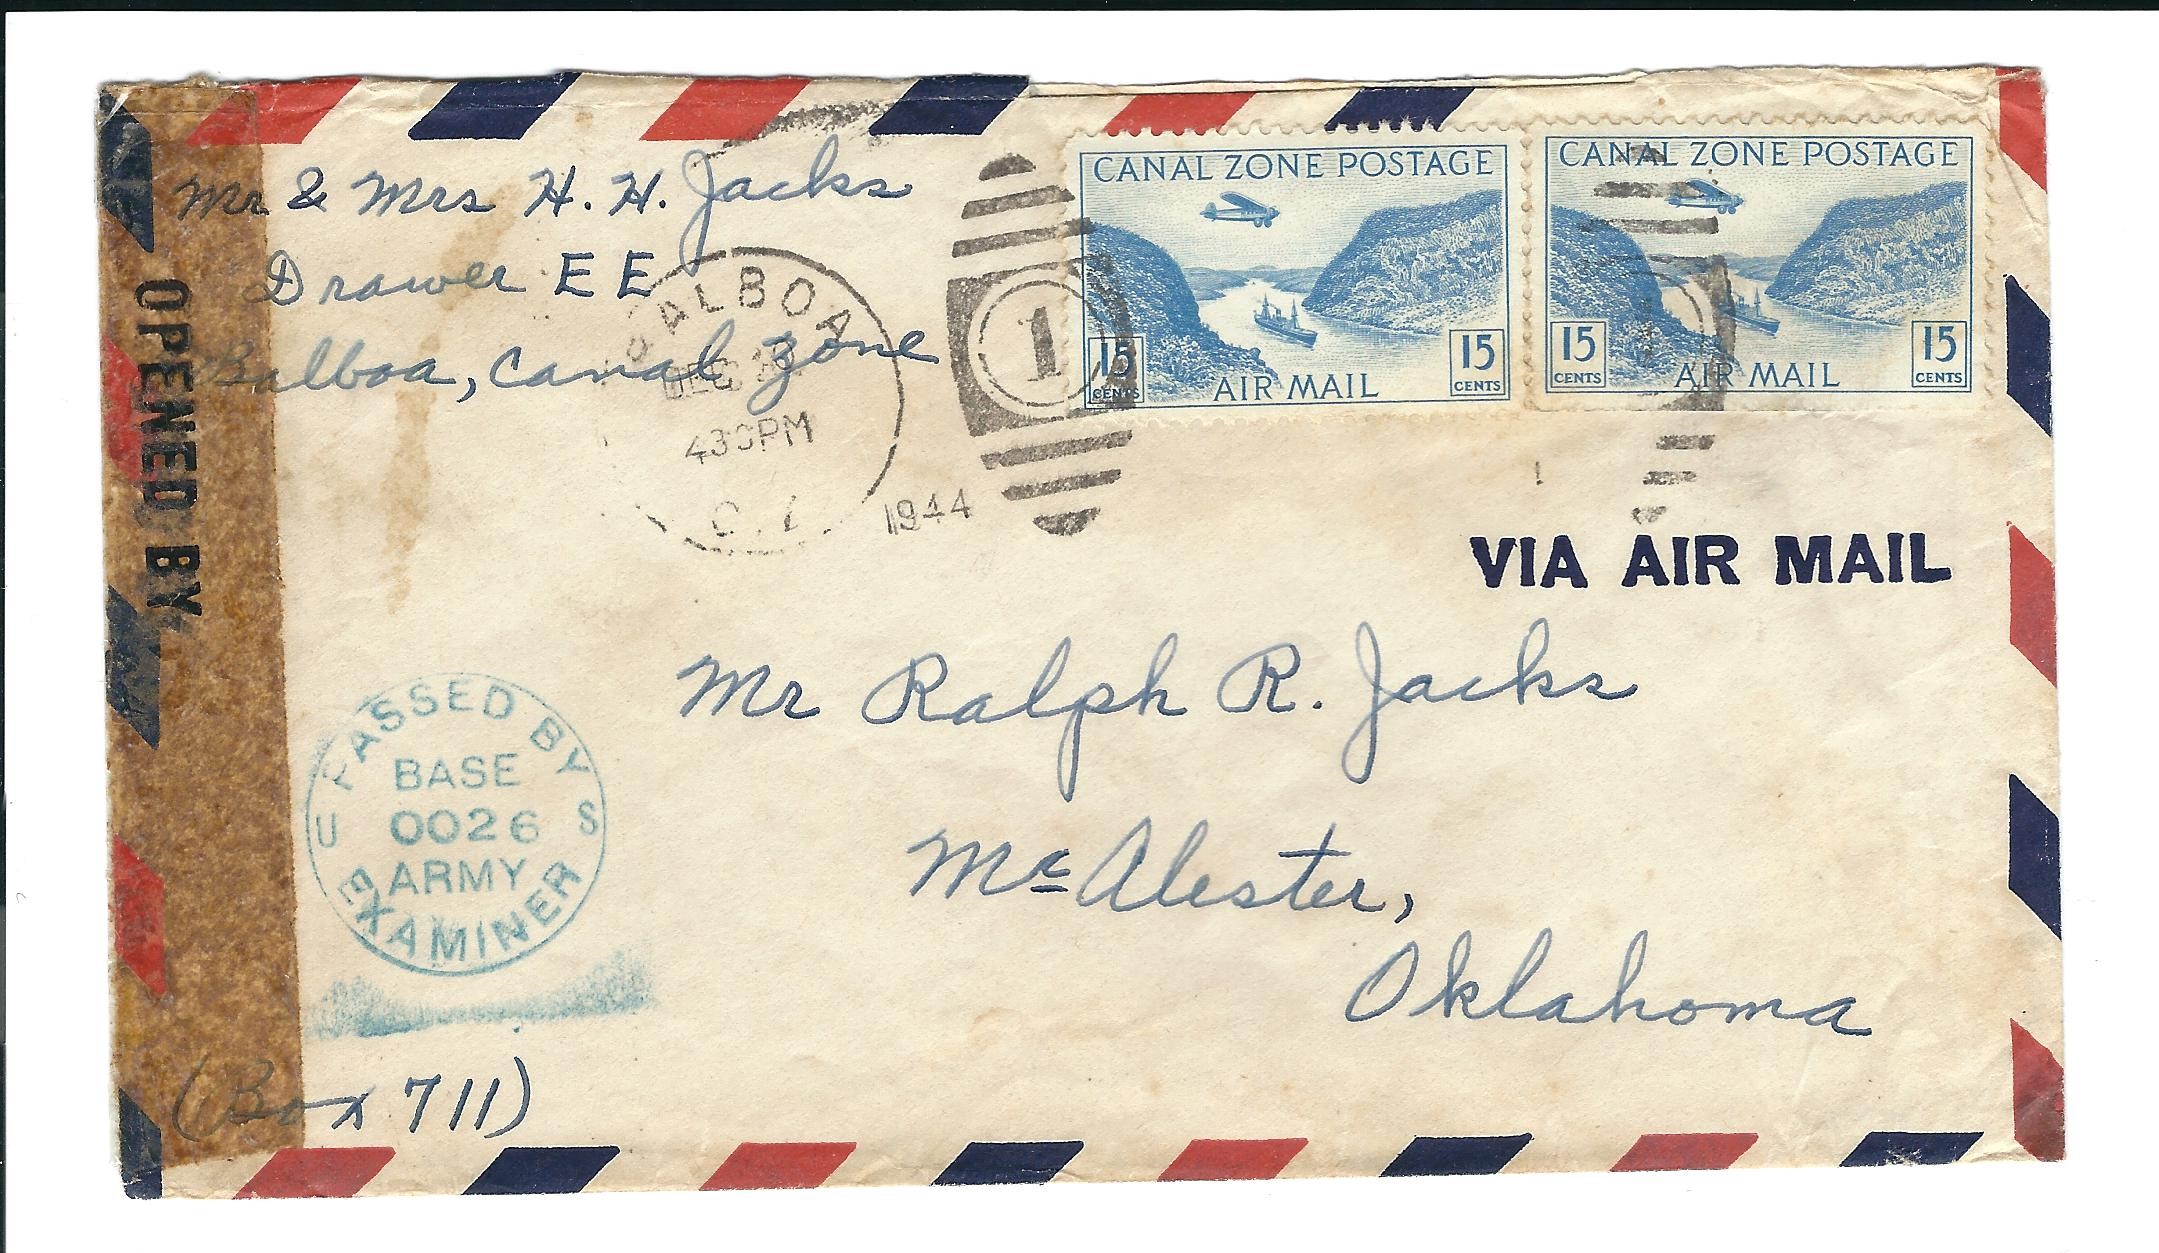 Mr & Mrs H. H. Jacks
Drawer EE
Balboa, Canal Zone
BALBOA
DEC
430PM
C.Z.
1944
1
CANAL ZONE POSTAGE
15 CENTS
AIR MAIL
15 CENTS
CANAL ZONE POSTAGE
15 CENTS
AIR MAIL
15 CENTS
VIA AIR MAIL
OPENED BY
Mr Ralph R. Jacks
McAlester,
Oklahoma
PASSED BY
BASE
U 0026 S
ARMY
EXAMINER
(Box 711)